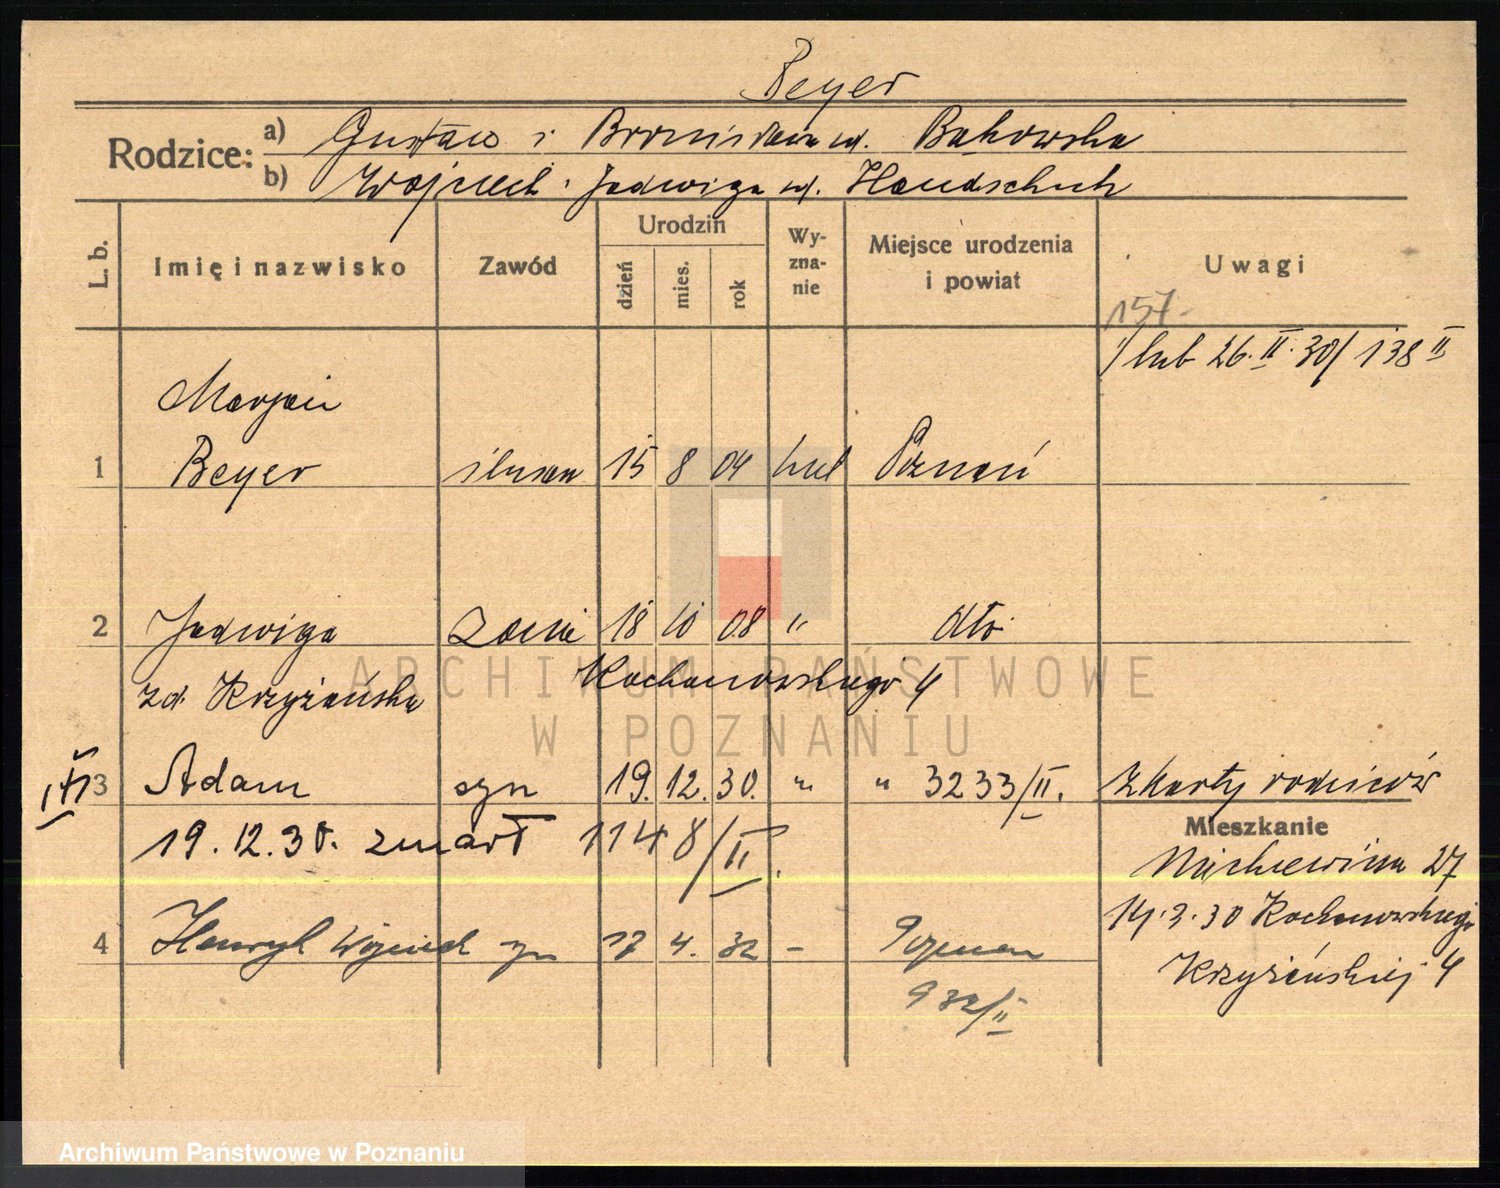 Beyer
Rodzice: a) Gustaw i Bronisława zd. Bąkowska
b) Wojciech i Jadwiga zd. Handschuh
L. b. Imię i nazwisko Zawód Urodzin dzień mies. rok Wy-zna-nie Miejsce urodzenia i powiat Uwagi
157
ślub 26. II. 30/138 II
Marjan
1 Beyer ślusarz 15 8 04 kat Poznań
2 Jadwiga żona 18 10 08 " dto
zd. Krzyżańska Kochanowskiego 4
3 Adam syn 19. 12. 30. " " 3233/II. z karty rodziców
19. 12. 30. zmarł 1148/II.
Mieszkanie
Mickiewicza 27
14. 2. 30 Kochanowskiego
4 Henryk Wojciech syn 17 4. 32 - Poznań
Krzyżańskiej 4
932/II
ARCHIWUM PAŃSTWOWE
W POZNANIU
Archiwum Państwowe w Poznaniu